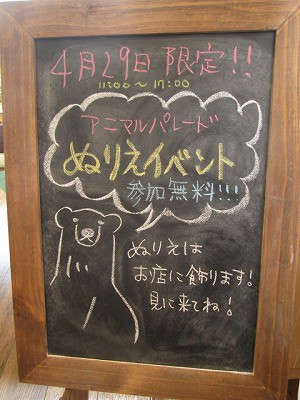 4月29日限定!!
11:00～17:00
アニマルパレード
ぬりえイベント
参加無料!!!
ぬりえは
お店に飾ります!
見に来てね!